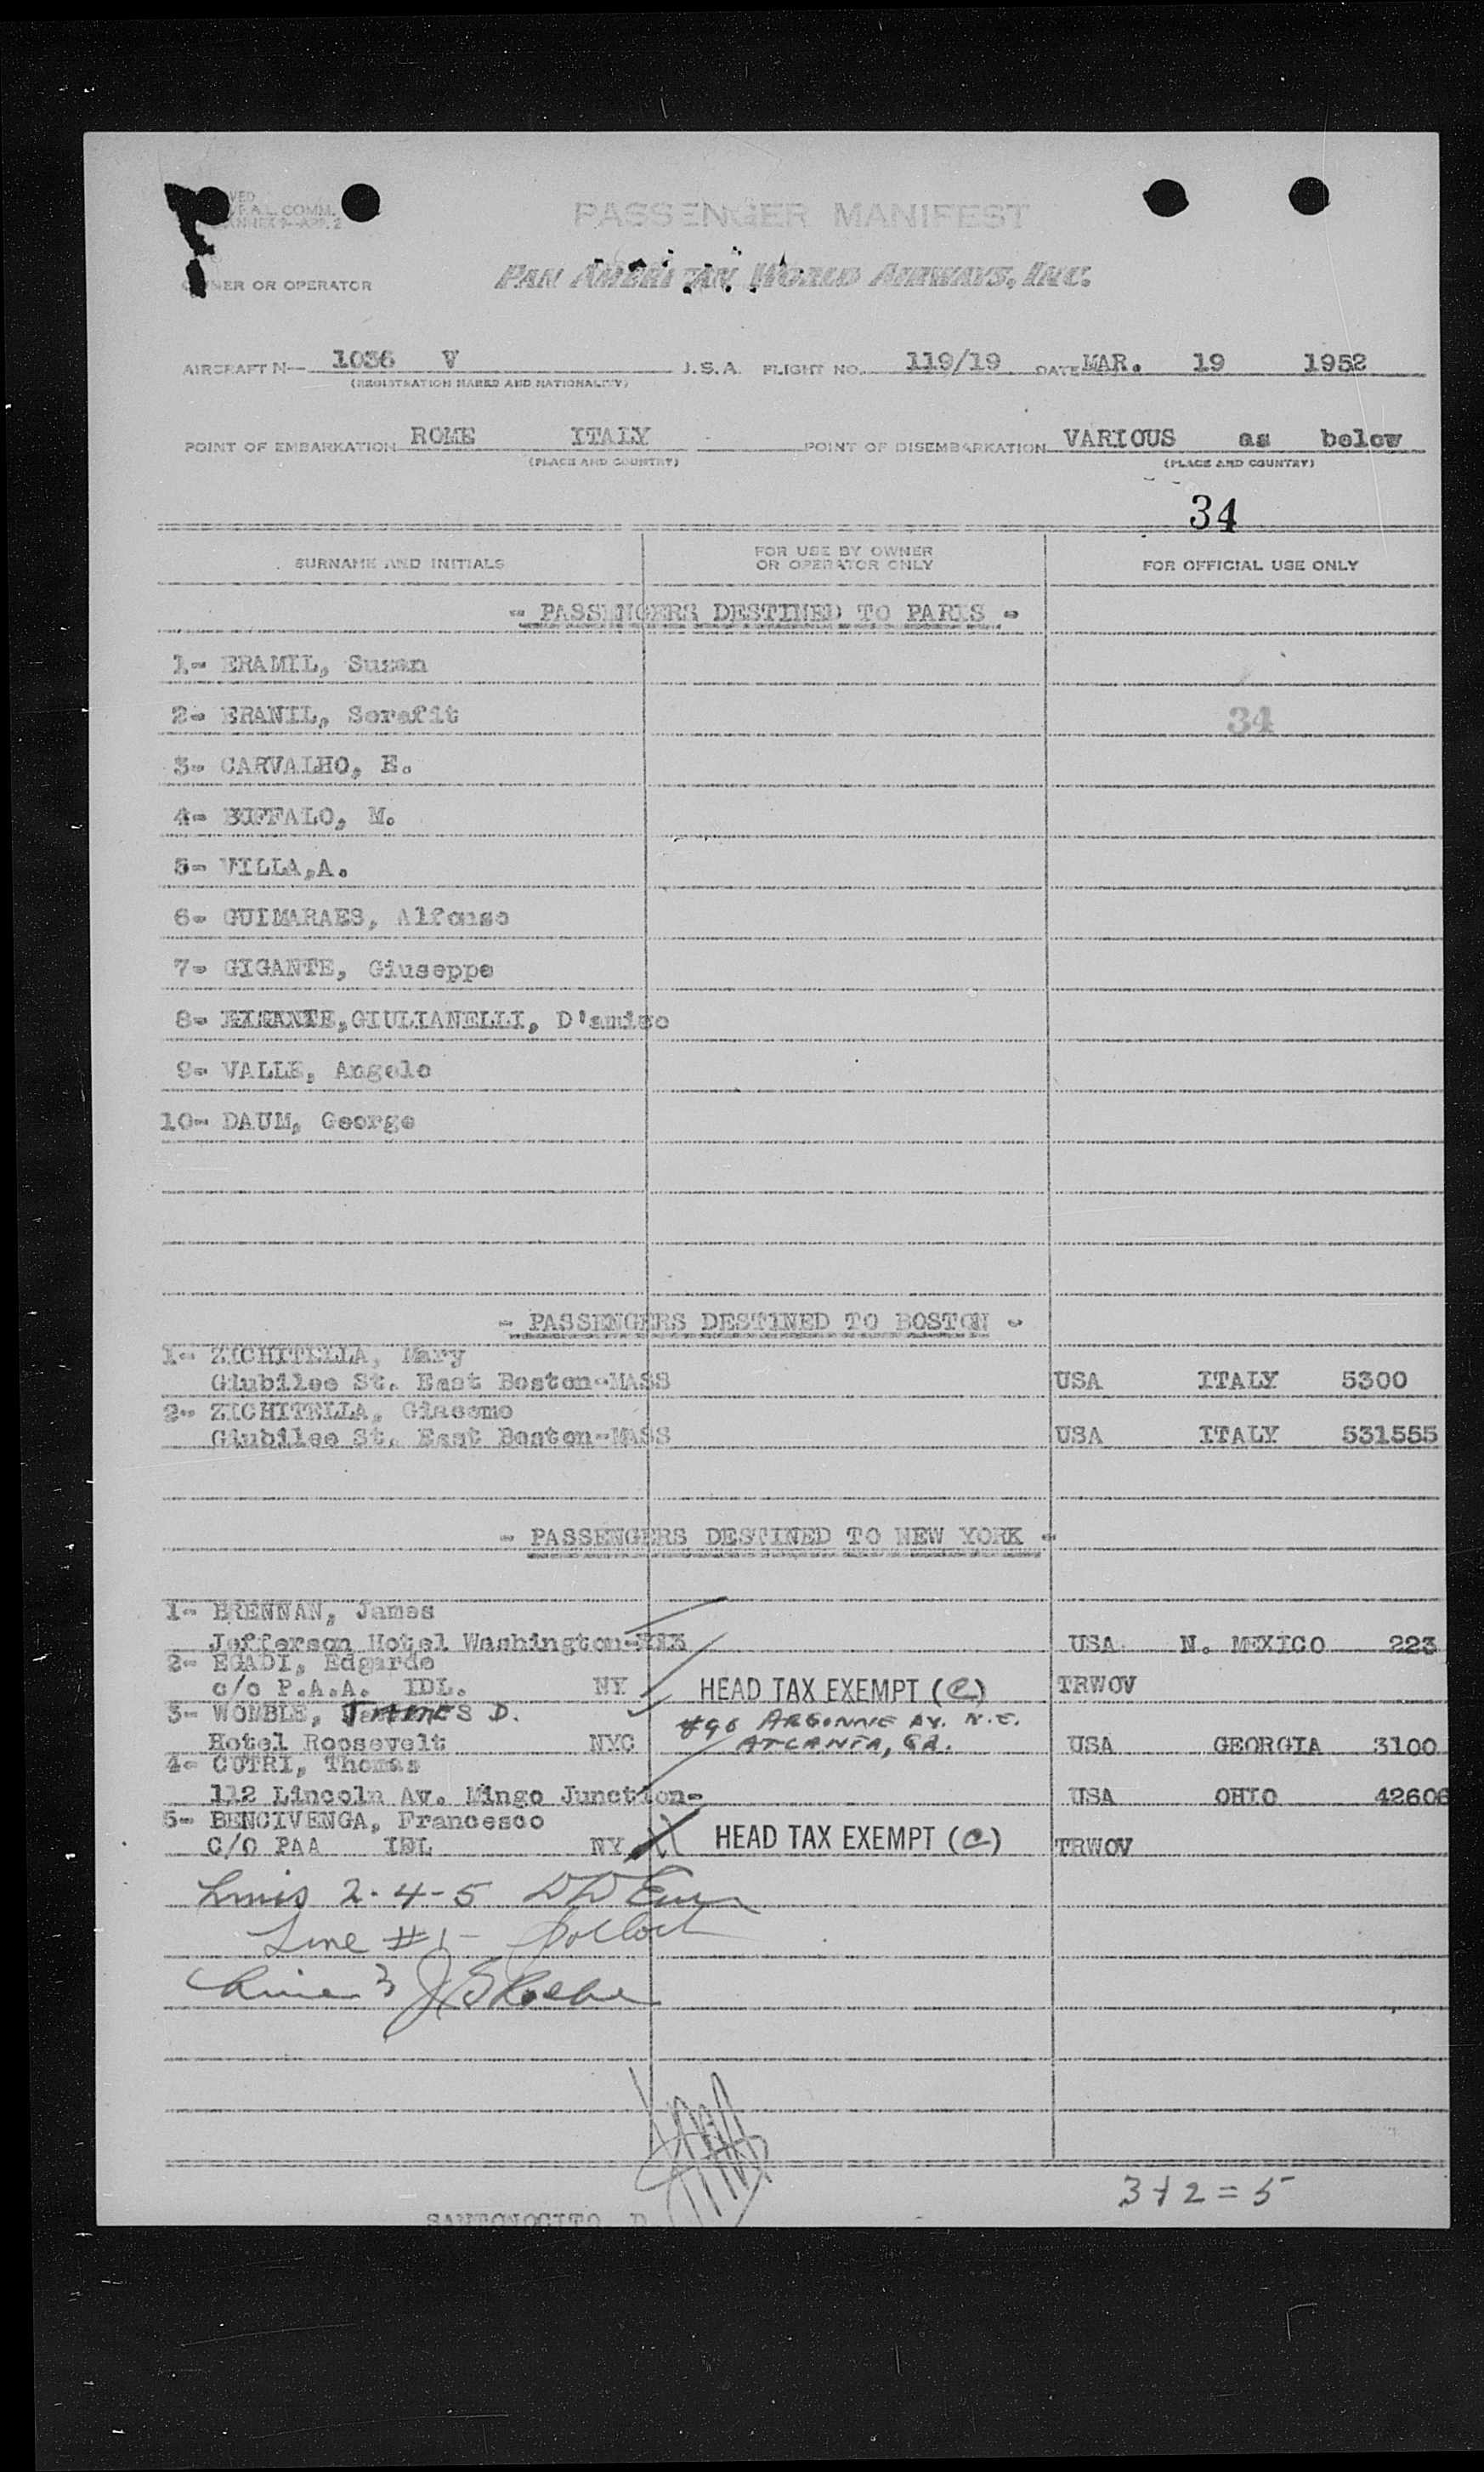 VED
F.A.L. COMM.
ANNEX 9-APP. 2
PASSENGER MANIFEST
OWNER OR OPERATOR PAN AMERICAN WORLD AIRWAYS, INC.
AIRCRAFT N— 1036 V U.S.A. FLIGHT NO. 119/19 DATE MAR. 19 1952
(REGISTRATION MARKS AND NATIONALITY)
POINT OF EMBARKATION ROME ITALY POINT OF DISEMBARKATION VARIOUS as below
(PLACE AND COUNTRY) (PLACE AND COUNTRY)
34
SURNAME AND INITIALS FOR USE BY OWNER OR OPERATOR ONLY FOR OFFICIAL USE ONLY
- PASSENGERS DESTINED TO PARIS -
1- ERAMIL, Suzan
2- ERANIL, Serafit 34
3- CARVALHO, E.
4- BUFFALO, M.
5- VILLA,A.
6- GUIMARAES, Alfonso
7- GIGANTE, Giuseppe
8- GIULIANELLI, D'amico
9- VALLE, Angelo
10- DAUM, George
- PASSENGERS DESTINED TO BOSTON -
1- ZICHITELLA, Mary
Giubilee St. East Boston-MASS USA ITALY 5300
2- ZICHITELLA, Giacomo
Giubilee St. East Boston-MASS USA ITALY 531555
- PASSENGERS DESTINED TO NEW YORK -
1- BRENNAN, James
Jefferson Hotel Washington- USA N. MEXICO 223
2- EGADI, Edgardo
c/o P.A.A. IDL. NY HEAD TAX EXEMPT (C) TRWOV
3- WOMBLE, JAMES D. 496 ARGONNE AV. N.E.
Hotel Roosevelt NYC ATLANTA, GA. USA GEORGIA 3100
4- CUTRI, Thomas
112 Lincoln Av. Mingo Junction- USA OHIO 42606
5- BENCIVENGA, Francesco
C/O PAA IDL NY HEAD TAX EXEMPT (C) TRWOV
Lines 2-4-5
Line #1-
Line 3
3+2=5